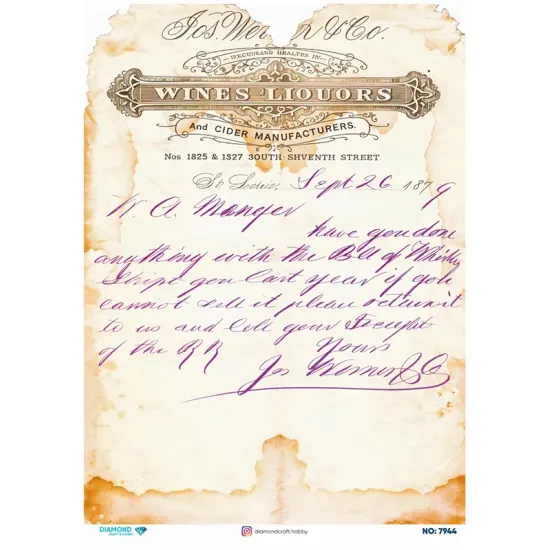 Jos. Wer r & Co.
WINES LIQUORS
And CIDER MANUFACTURERS.
Nos 1825 & 1327 SOUTH SHVENTH STREET
St Louis, Sept 26 1879
W. A. Monger
have you done
anything with the Bll of Whisky
Shipt you last year if you
cannot sell it please return it
to us and let your Receipt
of the R R Yours
Jos Werner & Co
DIAMOND
diamondcraft.hobby
NO: 7944